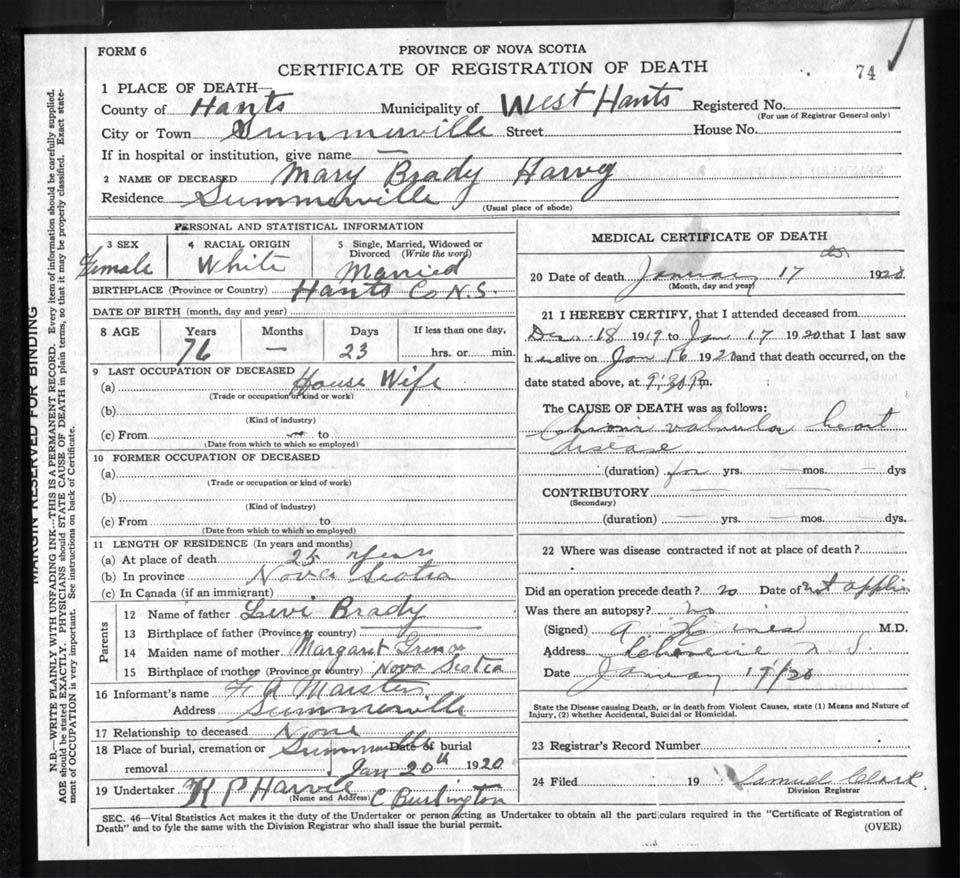 FORM 6
PROVINCE OF NOVA SCOTIA
CERTIFICATE OF REGISTRATION OF DEATH
74
1 PLACE OF DEATH—
County of Hants Municipality of West Hants Registered No.
(For use of Registrar General only)
City or Town Summerville Street House No.
If in hospital or institution, give name —
2 NAME OF DECEASED Mary Brady Harvey
Residence Summerville
(Usual place of abode)
PERSONAL AND STATISTICAL INFORMATION
3 SEX 4 RACIAL ORIGIN 5 Single, Married, Widowed or Divorced (Write the word)
Female White Married
BIRTHPLACE (Province or Country) Hants Co N.S.
DATE OF BIRTH (month, day and year)
8 AGE Years Months Days If less than one day,
76 — 23 hrs. or min.
9 LAST OCCUPATION OF DECEASED
(a) House Wife
(Trade or occupation or kind or work)
(b)
(Kind of industry)
(c) From to
(Date from which to which so employed)
10 FORMER OCCUPATION OF DECEASED
(a)
(Trade or occupation or kind of work)
(b)
(Kind of industry)
(c) From to
(Date from which to which so employed)
11 LENGTH OF RESIDENCE (In years and months)
(a) At place of death 25 years
(b) In province Nova Scotia
(c) In Canada (if an immigrant)
Parents
12 Name of father Levi Brady
13 Birthplace of father (Province or country)
14 Maiden name of mother Margaret
15 Birthplace of mother (Province or country) Nova Scotia
16 Informant's name
Address Summerville
17 Relationship to deceased None
18 Place of burial, cremation or removal Summerville Date of burial
Jan 20th 1920
19 Undertaker K P Harvie C Burlington
(Name and Address)
MEDICAL CERTIFICATE OF DEATH
20 Date of death January 17 1920
(Month, day and year)
21 I HEREBY CERTIFY, that I attended deceased from
Dec 18 1919 to Jan 17 1920 that I last saw
her alive on Jan 16 1920 and that death occurred, on the
date stated above, at 9:30 P.m.
The CAUSE OF DEATH was as follows:
Chronic valvular heart
disease
(duration) yrs. — mos. — dys
CONTRIBUTORY
(Secondary)
(duration) — yrs. — mos. — dys.
22 Where was disease contracted if not at place of death?
Did an operation precede death? no Date of not applic
Was there an autopsy? no
(Signed) M.D.
Address N.S.
Date January 19/20
State the Disease causing Death, or in death from Violent Causes, state (1) Means and Nature of
Injury, (2) whether Accidental, Suicidal or Homicidal.
23 Registrar's Record Number
24 Filed 19 Samuel Clark
Division Registrar
SEC. 46—Vital Statistics Act makes it the duty of the Undertaker or person acting as Undertaker to obtain all the particulars required in the "Certificate of Registration of
Death" and to fyle the same with the Division Registrar who shall issue the burial permit.
(OVER)
MARGIN RESERVED FOR BINDING
N.B.—WRITE PLAINLY WITH UNFADING INK—THIS IS A PERMANENT RECORD. Every item of information should be carefully supplied.
AGE should be stated EXACTLY. PHYSICIANS should STATE CAUSE OF DEATH in plain terms, so that it may be properly classified. Exact state-
ment of OCCUPATION is very important. See instructions on back of Certificate.